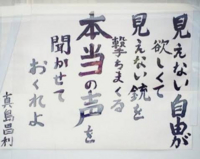 見えない自由が
欲しくて
見えない銃を
撃ちまくる
本当の声を
聞かせて
おくれよ
真島昌利